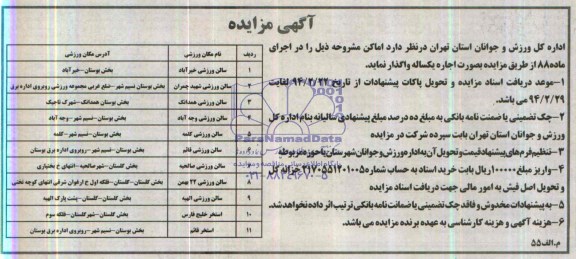 آگهی مزایده
اداره کل ورزش و جوانان استان تهران درنظر دارد اماکن مشروحه ذیل را در اجرای
ماده۸۸ از طریق مزایده بصورت اجاره یکساله واگذار نماید.
۱-موعد دریافت اسناد مزایده و تحویل پاکات پیشنهادات از تاریخ ۹۴/۲/۲۲ لغایت
۹۴/۲/۲۹ می باشد.
۲-چک تضمینی یا ضمنت نامه بانکی به مبلغ ده درصد مبلغ پیشنهادی سالیانه بنام اداره کل
ورزش و جوانان استان تهران بابت سپرده شرکت در مزایده
۳-تنظیم فرم های پیشنهاد قیمت و تحویل آن به اداره ورزش و جوانان شهرستان یا حوزه مربوطه
۴-واریز مبلغ ۱۰۰۰۰۰ ریال بابت خرید اسناد به حساب شماره خزانه کل
و تحویل اصل فیش به امور مالی جهت دریافت اسناد مزایده
۵-به پیشنهادات مخدوش و فاقد چک تضمینی یا ضمانت نامه بانکی ترتیب اثر داده نخواهد شد.
۶-هزینه آگهی و هزینه کارشناسی به عهده برنده مزایده می باشد.
م.الف۵۵
ردیف نام مکان ورزشی آدرس مکان ورزشی
۱ سالن ورزشی خیرآباد بخش بوستان-خیرآباد
۲ سالن ورزشی شهید چمران بخش بوستان نسیم شهر-ضلع غربی مجموعه ورزشی روبروی اداره برق
۳ سالن ورزشی همدانک بخش بوستان همدانک-شهرک تاجیک
۴ سالن ورزشی وجه آباد بخش بوستان-نسیم شهر-وجه آباد
۵ سالن ورزشی کلمه بخش بوستان-نسیم شهر-کلمه
۶ سالن ورزشی قائم بخش بوستان-نسیم شهر-روبروی اداره برق بوستان
۷ سالن ورزشی صالحیه بخش گلستان-گلستان-شهرصالحیه-انتهای خ بختیاری
۸ سالن ورزشی ۲۲ بهمن بخش گلستان-گلستان-فلکه اول خ ارغوان شرقی انتهای کوچه نختی
۹ سالن ورزشی الهیه بخش گلستان-گلستان-پشت پارک الهیه
۱۰ استخر خلیج فارس بخش گلستان-شهرگلستان-فلکه سوم
۱۱ استخر قائم بخش بوستان-نسیم شهر-روبروی اداره برق بوستان
ParsNamadData